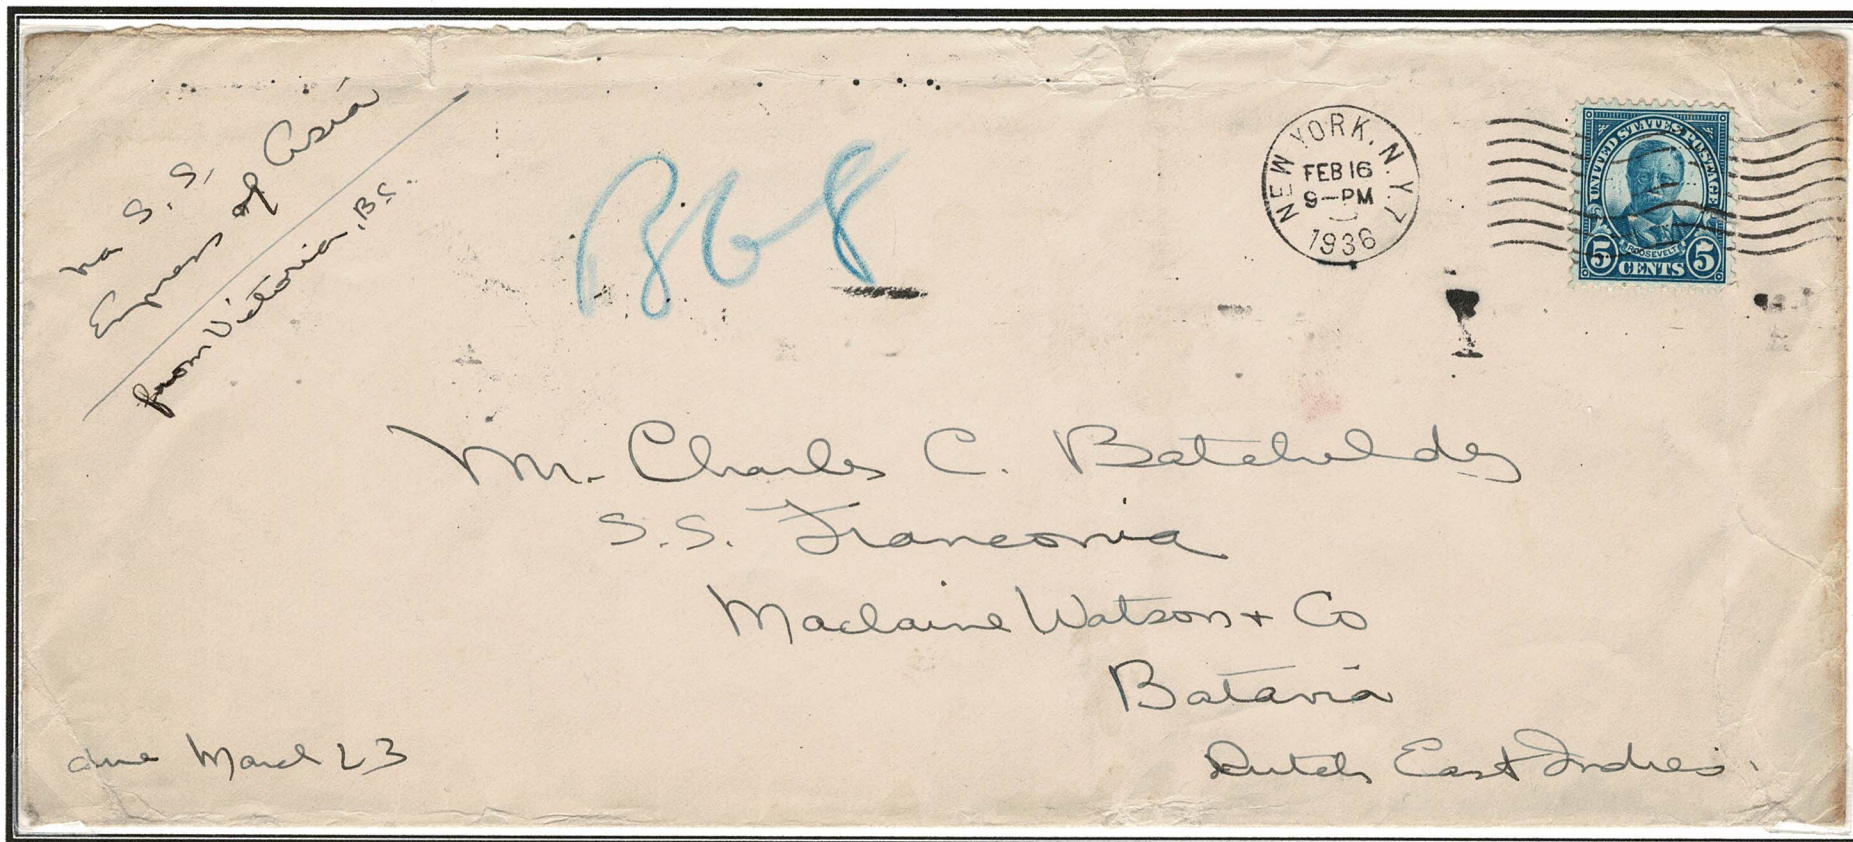 via S.S.
Empress of Asia
from Victoria, B.C.
B68
NEW YORK, N.Y. 7
FEB 16
9-PM
1936
UNITED STATES POSTAGE
ROOSEVELT
5 CENTS 5
Mr. Charles C. Batchelder
S.S. Franconia
Maclaine Watson + Co
Batavia
Dutch East Indies.
due March 23